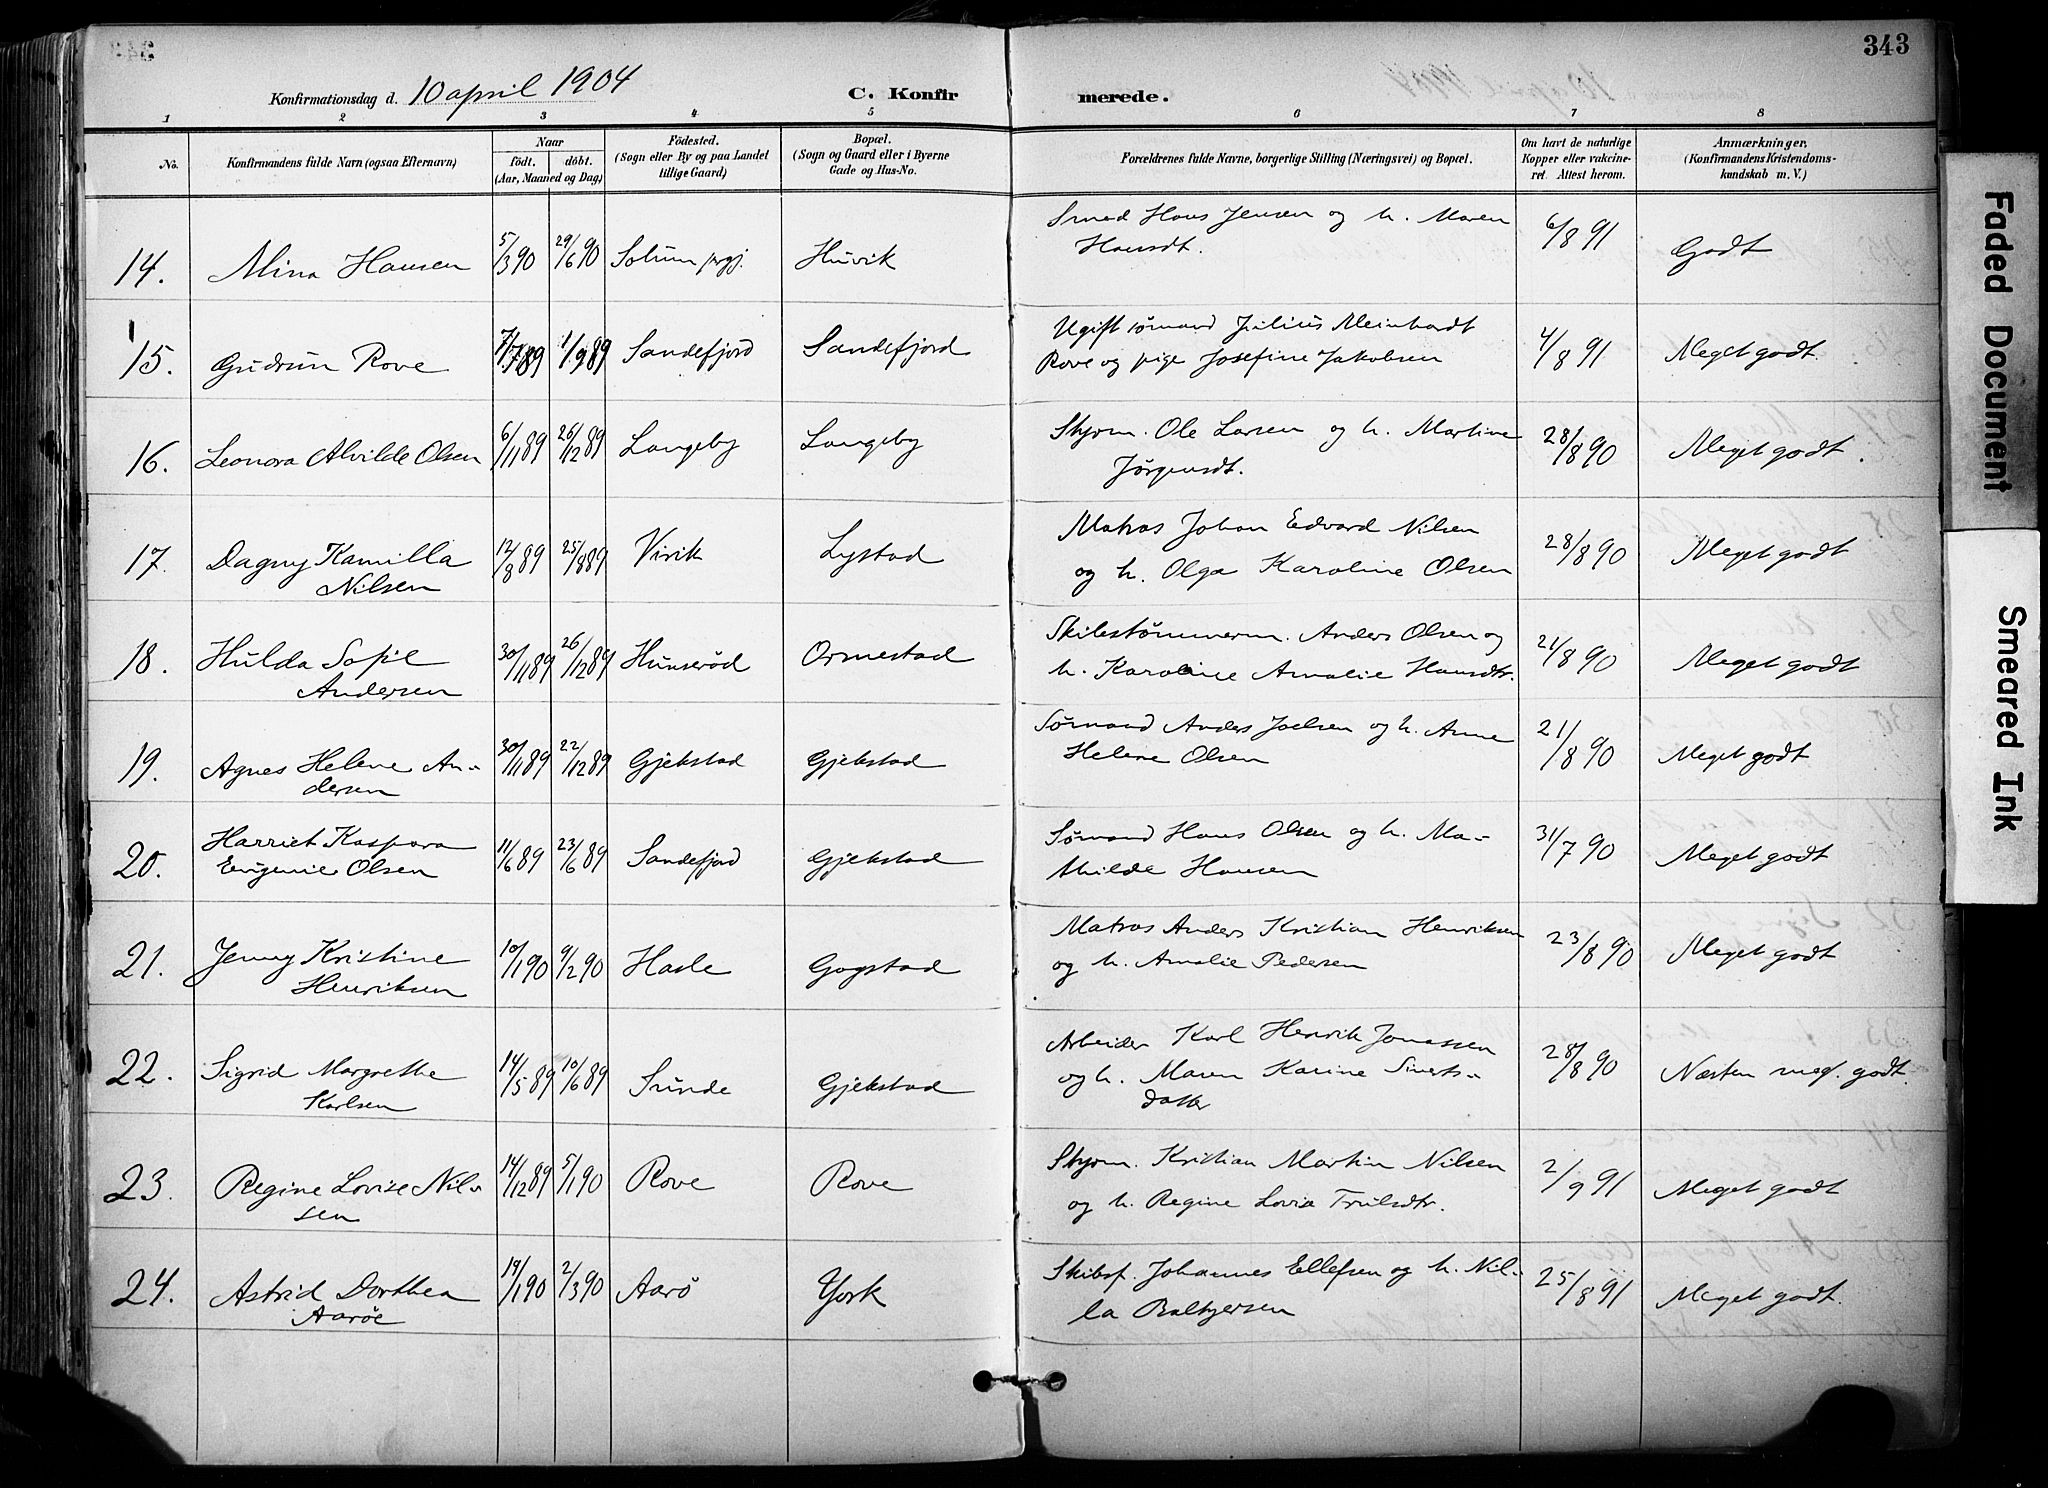 343
Konfirmationsdag d. 10 april 1904
C. Konfirmerede.
1 2 3 4 5 6 7 8
No.
Konfirmandens fulde Navn (ogsaa Efternavn)
Naar
födt. döbt.
(Aar, Maaned og Dag)
Födested.
(Sogn eller By og paa Landet
tillige Gaard)
Bopæl.
(Sogn og Gaard eller i Byerne
Gade og Hus-No.
Forældrenes fulde Navne, borgerlige Stilling (Næringsvei) og Bopæl.
Om havt de naturlige
Kopper eller vakcine-
ret. Attest herom.
Anmærkninger.
(Konfirmandens Kristendoms-
kundskab m. V.)
14. Mina Hansen 5/3 90 29/6 90 Solum prgj. Huvik
Smed Hans Jensen og h. Maren
Hansdt.
6/8 91 Godt
15. Gudrun Rove 7/7 89 1/9 89 Sandefjord Sandefjord
Ugift sømand Julius Meinhardt
Rove og pige Josefine Jakobsen
4/8 91 Meget godt.
16. Leonora Alvilde Olsen 6/11 89 26/12 89 Langeby Langeby
Skjøm. Ole Larsen og h. Martine
Jørgensdt.
28/8 90 Meget godt.
17. Dagny Kamilla
Nilsen
12/8 89 25/8 89 Virik Lystad
Matros Johan Edvard Nilsen
og h. Olga Karoline Olsen
28/8 90 Meget godt
18. Hulda Sofie
Andersen
30/11 89 26/12 89 Hunserød Ormestad
Skibstømmerm. Anders Olsen og
h. Karoline Amalie Hansdtr.
21/8 90 Meget godt
19. Agnes Helene An-
dersen
30/11 89 22/12 89 Gjekstad Gjekstad
Sømand Anders Joelsen og h. Anne
Helene Olsen
21/8 90 Meget godt
20. Harriet Kaspara
Eugenie Olsen
11/6 89 23/6 89 Sandefjord Gjekstad
Sømand Hans Olsen og h. Ma-
thilde Hansen
31/7 90 Meget godt
21. Jenny Kristine
Henriksen
10/1 90 9/2 90 Hasle Gogstad
Matros Anders Kristian Henriksen
og h. Amalie Pedersen
23/8 90 Meget godt
22. Sigrid Margrethe
Karlsen
14/5 89 10/6 89 Sunde Gjekstad
Arbeider Karl Henrik Jonassen
og h. Maren Karine Siverts-
datter
28/8 90 Næsten meg. godt.
23. Regine Lovise Nil-
sen
14/12 89 5/1 90 Rove Rove
Skjøm. Kristian Martin Nilsen
og h. Regine Lovise Trulsdtr.
2/9 91 Meget godt
24. Astrid Dorthea
Aarøe
19/1 90 2/3 90 Aarö York
Skibsf. Johannes Ellefsen og h. Nil-
la
25/8 91 Meget godt.
Faded Document
Smeared Ink